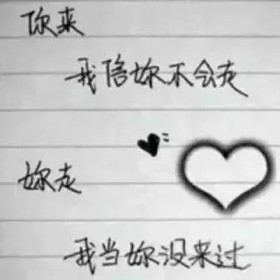 你来
我信妳不会走
妳走
我当妳没来过